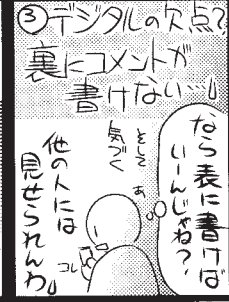 ③デジタルの欠点?
裏にコメントが
書けない…!
なら表に書けば
いーんじゃね?
あ
そして
気づく
コレ
他の人には
見せられんわ